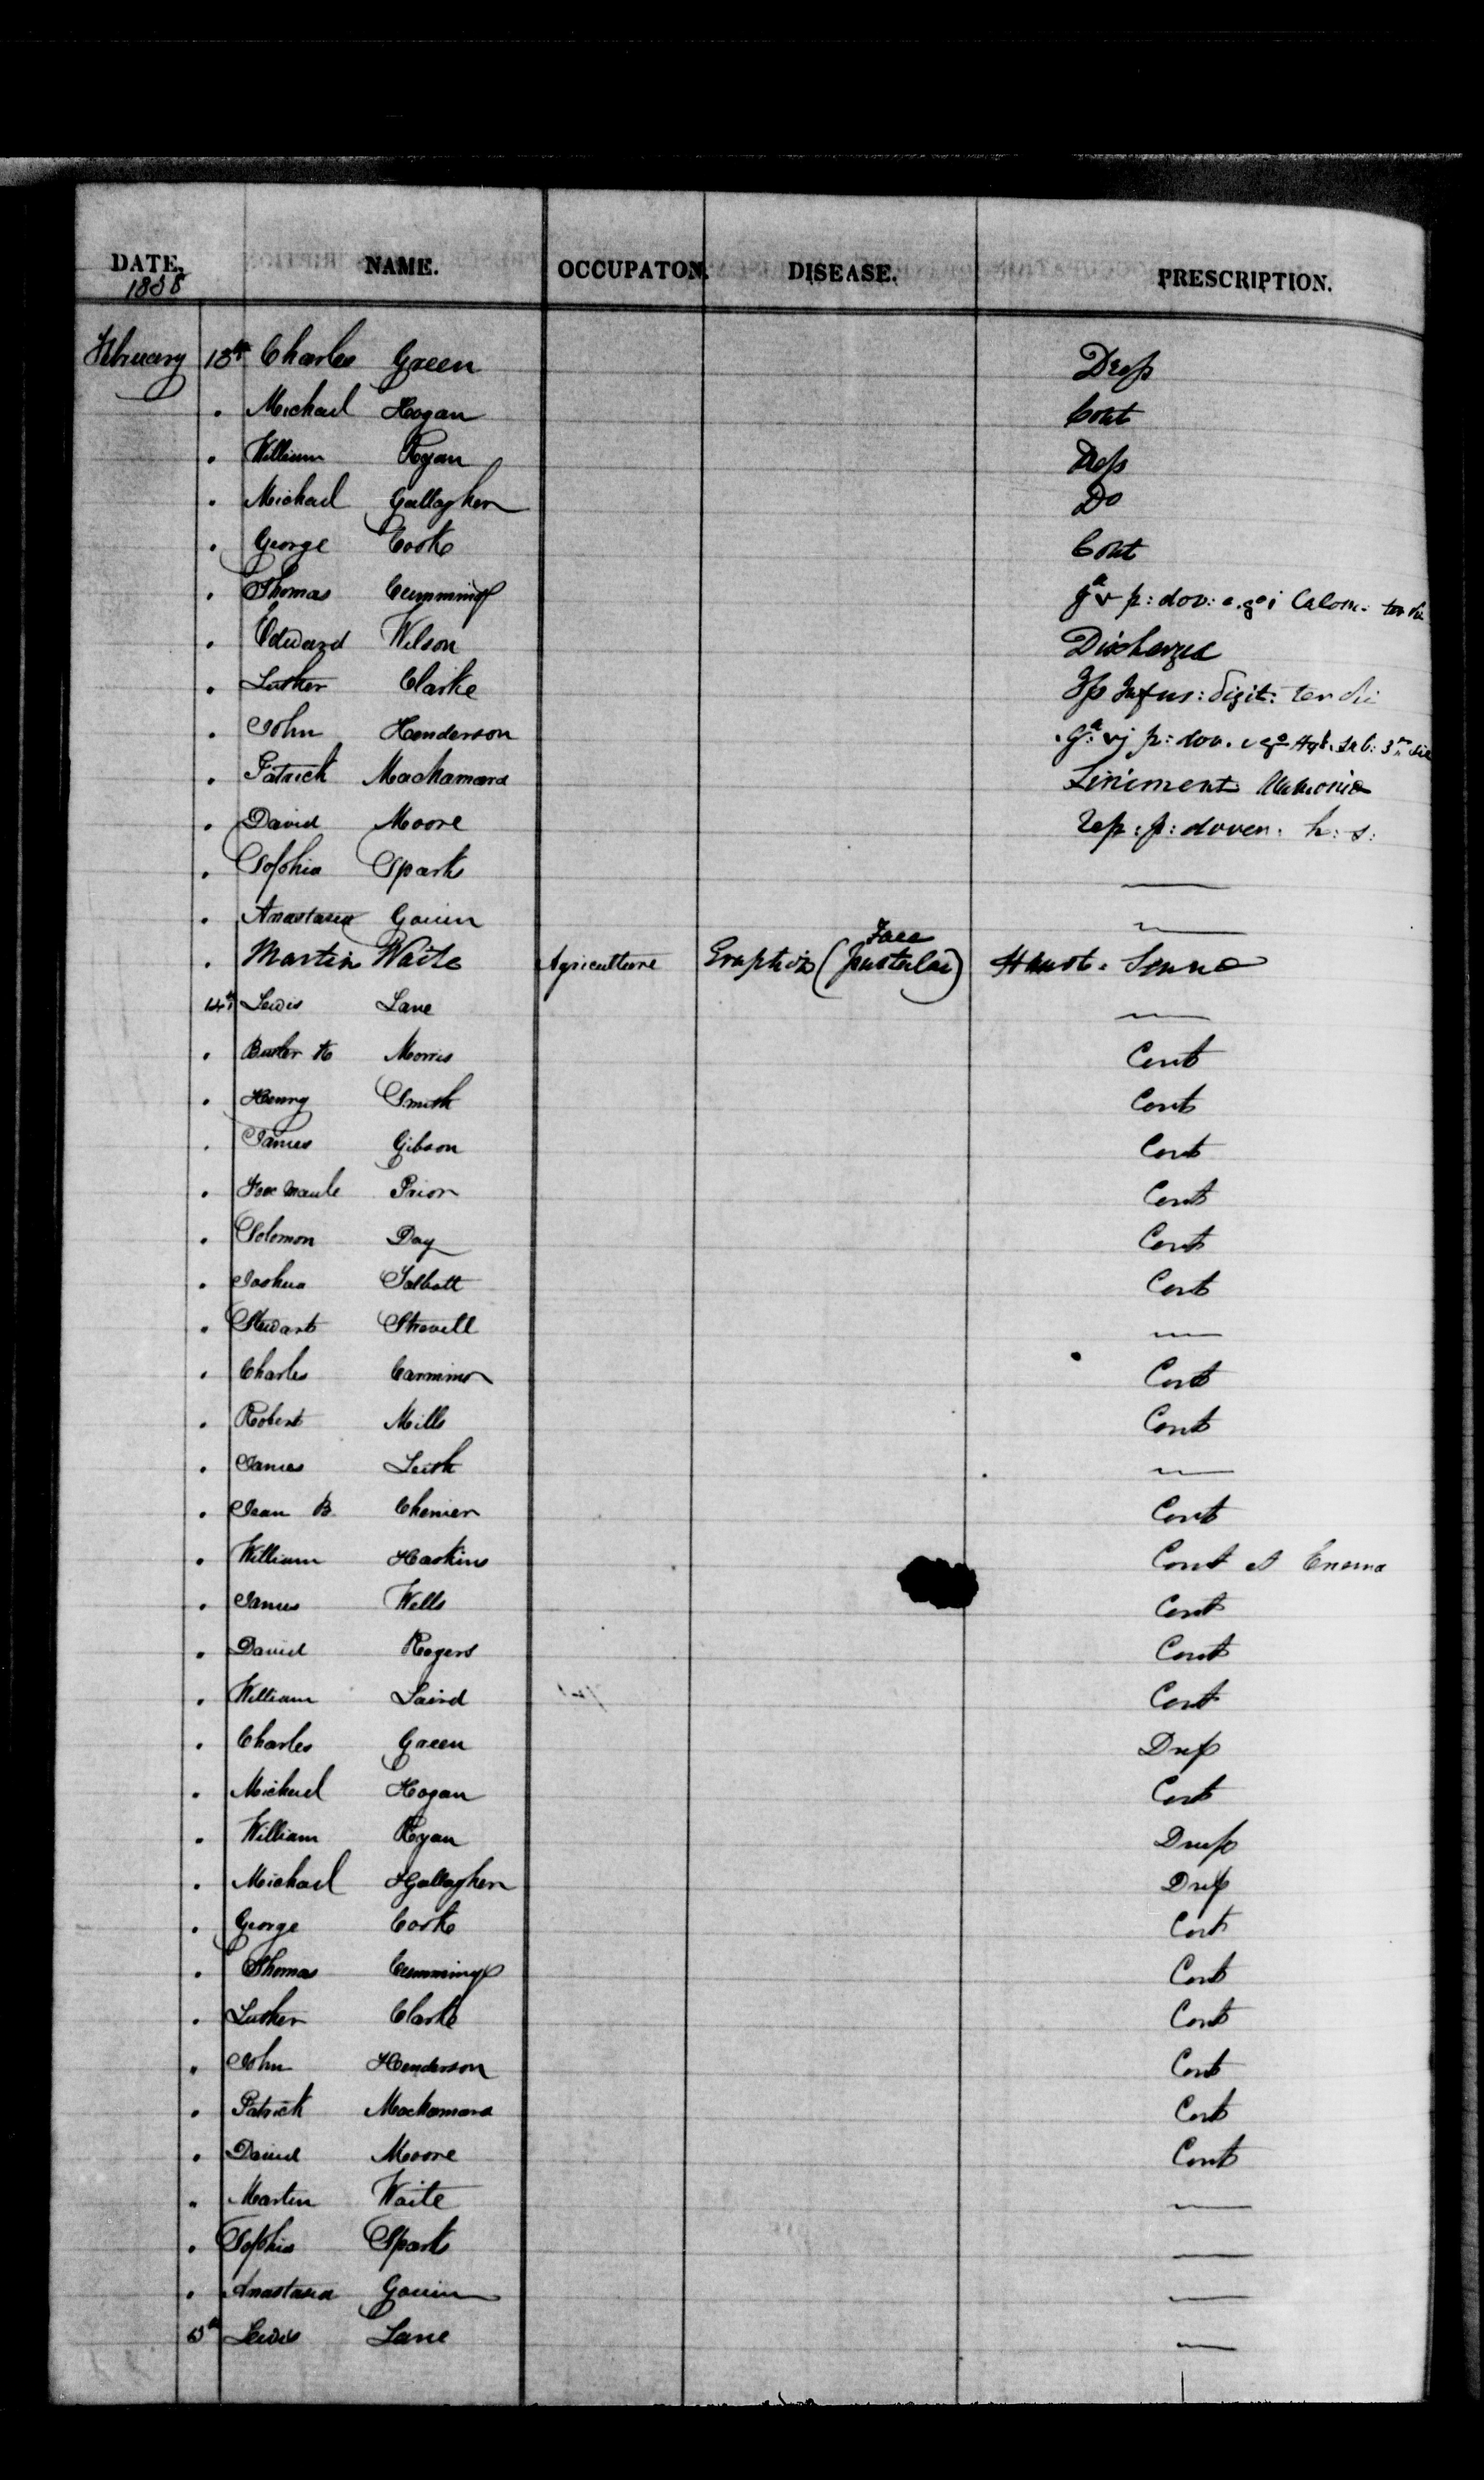 DATE, NAME. OCCUPATON. DISEASE. PRESCRIPTION.
1858
February 13th Charles Green Drep
" Michael Hogan Cont
" William Ryan Drep
" Michael Gallagher Do
" George Cooke Cont
" Thomas Cummings gr v p: dov: c. gr i Calom. ter die
" Edward Wilson Discharged
" Luther Clarke Infus: digit: ter die
" John Henderson gr vj p: dov.
" Patrick Macnamara Liniment Ammonia
" David Moore Rep: p: dover. h: s:
" Sophia Sparks —
" Anastasia Gouin —
Face
" Martin Waite Agriculture Eruption (pustular) Haust. Senna
14th Lewis Lane —
" Butler Morris Cont
" Henry Smith Cont
" James Gibson Cont
" Fox Maule Prior Cont
" Solomon Day Cont
" Joshua Talbott Cont
" Stewart Strevell —
" Charles Cammins Cont
" Robert Mills Cont
" James Leith —
" Jean B Chenier Cont
" William Haskins Cont et Enema
" James Wells Cont
" David Rogers Cont
" William Laird Cont
" Charles Green Drep
" Michael Hogan Cont
" William Ryan Drep
" Michael Gallagher Drep
" George Cooke Cont
" Thomas Cummings Cont
" Luther Clarke Cont
" John Henderson Cont
" Patrick Macnamara Cont
" David Moore Cont
" Martin Waite —
" Sophia Sparks —
" Anastasia Gouin —
15th Lewis Lane —